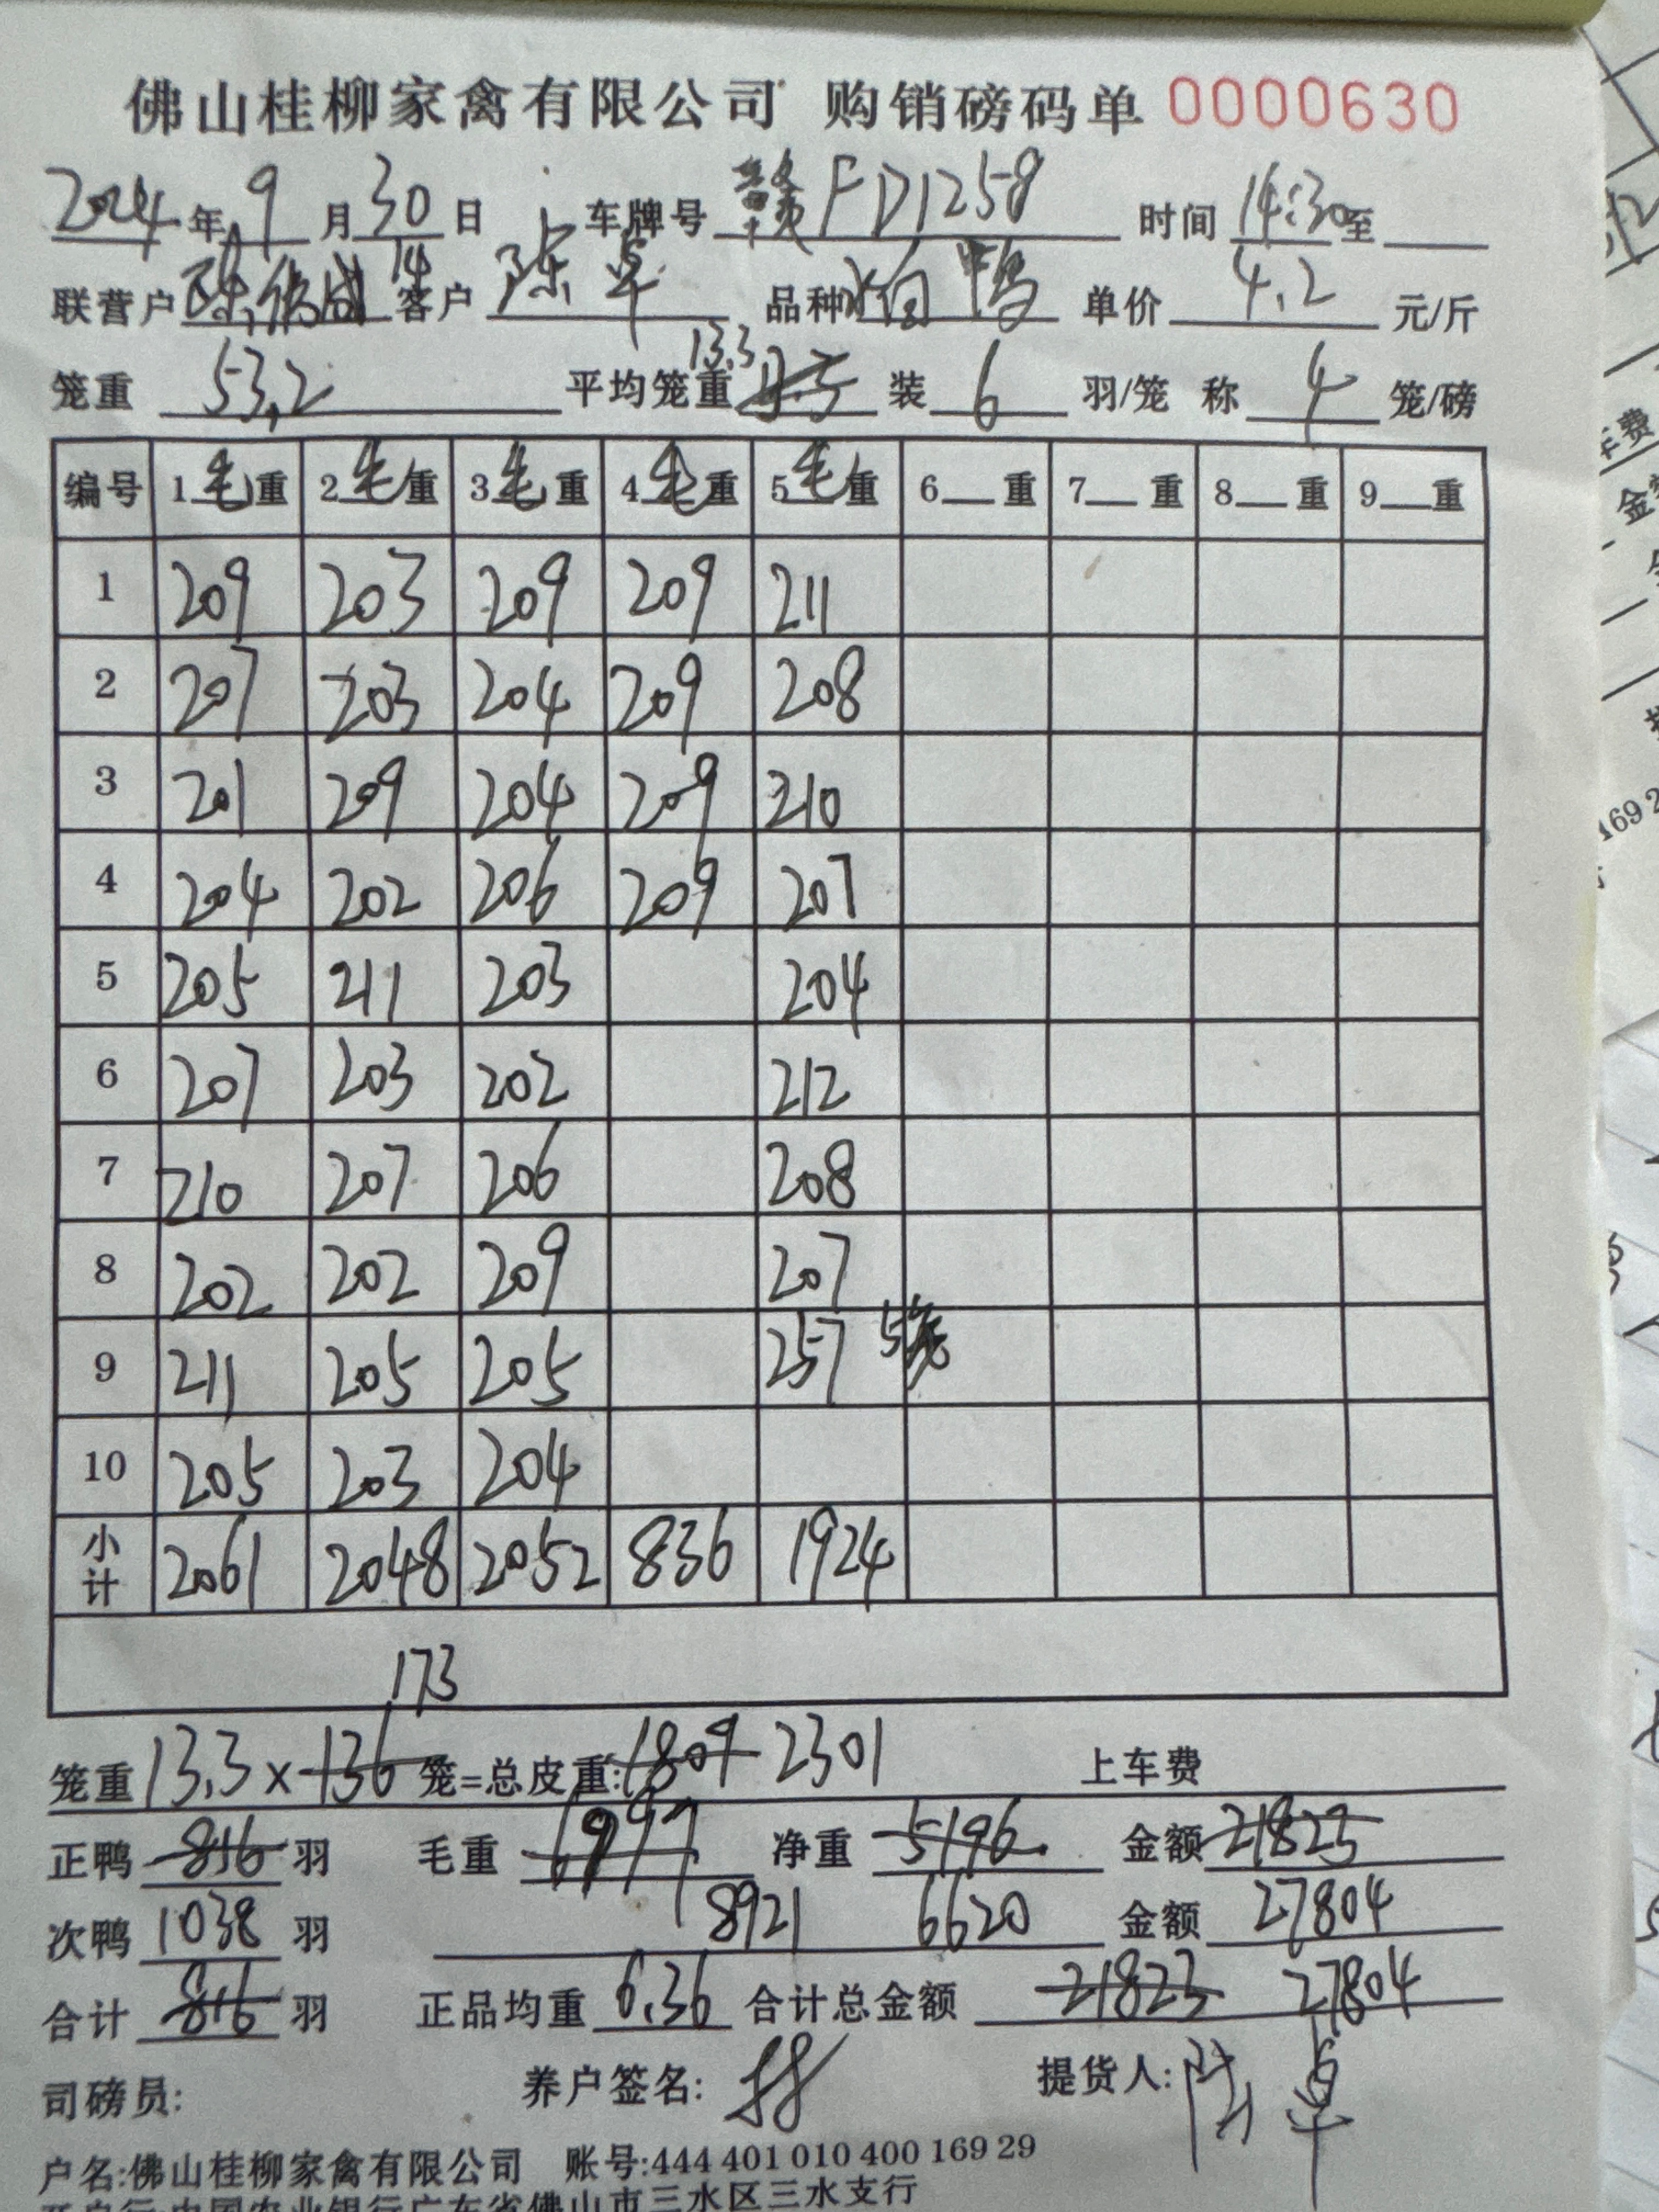 佛山桂柳家禽有限公司 购销磅码单 0000630
2024年9月30日 车牌号 赣FD1258 时间14:30至
联营户 陈 14 客户 陈 品种 鸭 单价 4.2 元/斤
笼重 53.2 平均笼重 13.3 装 6 羽/笼 称 4 笼/磅
编号 1毛重 2毛重 3毛重 4毛重 5毛重 6 重 7 重 8 重 9 重
1 209 203 209 209 211
2 207 203 204 209 208
3 201 209 204 209 210
4 204 202 206 209 207
5 205 211 203 204
6 207 203 202 212
7 210 207 206 208
8 202 202 209 207
9 211 205 205 257 5笼
10 205 203 204
小计 2061 2048 2052 836 1924
173
笼重 13.3 x 136 笼=总皮重: 1809 2301 上车费
正鸭 816 羽 毛重 6997 净重 5196 金额 21823
次鸭 1038 羽 8921 6620 金额 27804
合计 816 羽 正品均重 6.36 合计总金额 21823 27804
司磅员: 养户签名: 提货人:
户名:佛山桂柳家禽有限公司 账号:444 401 010 400 169 29
开户行:中国农业银行广东省佛山市三水区三水支行